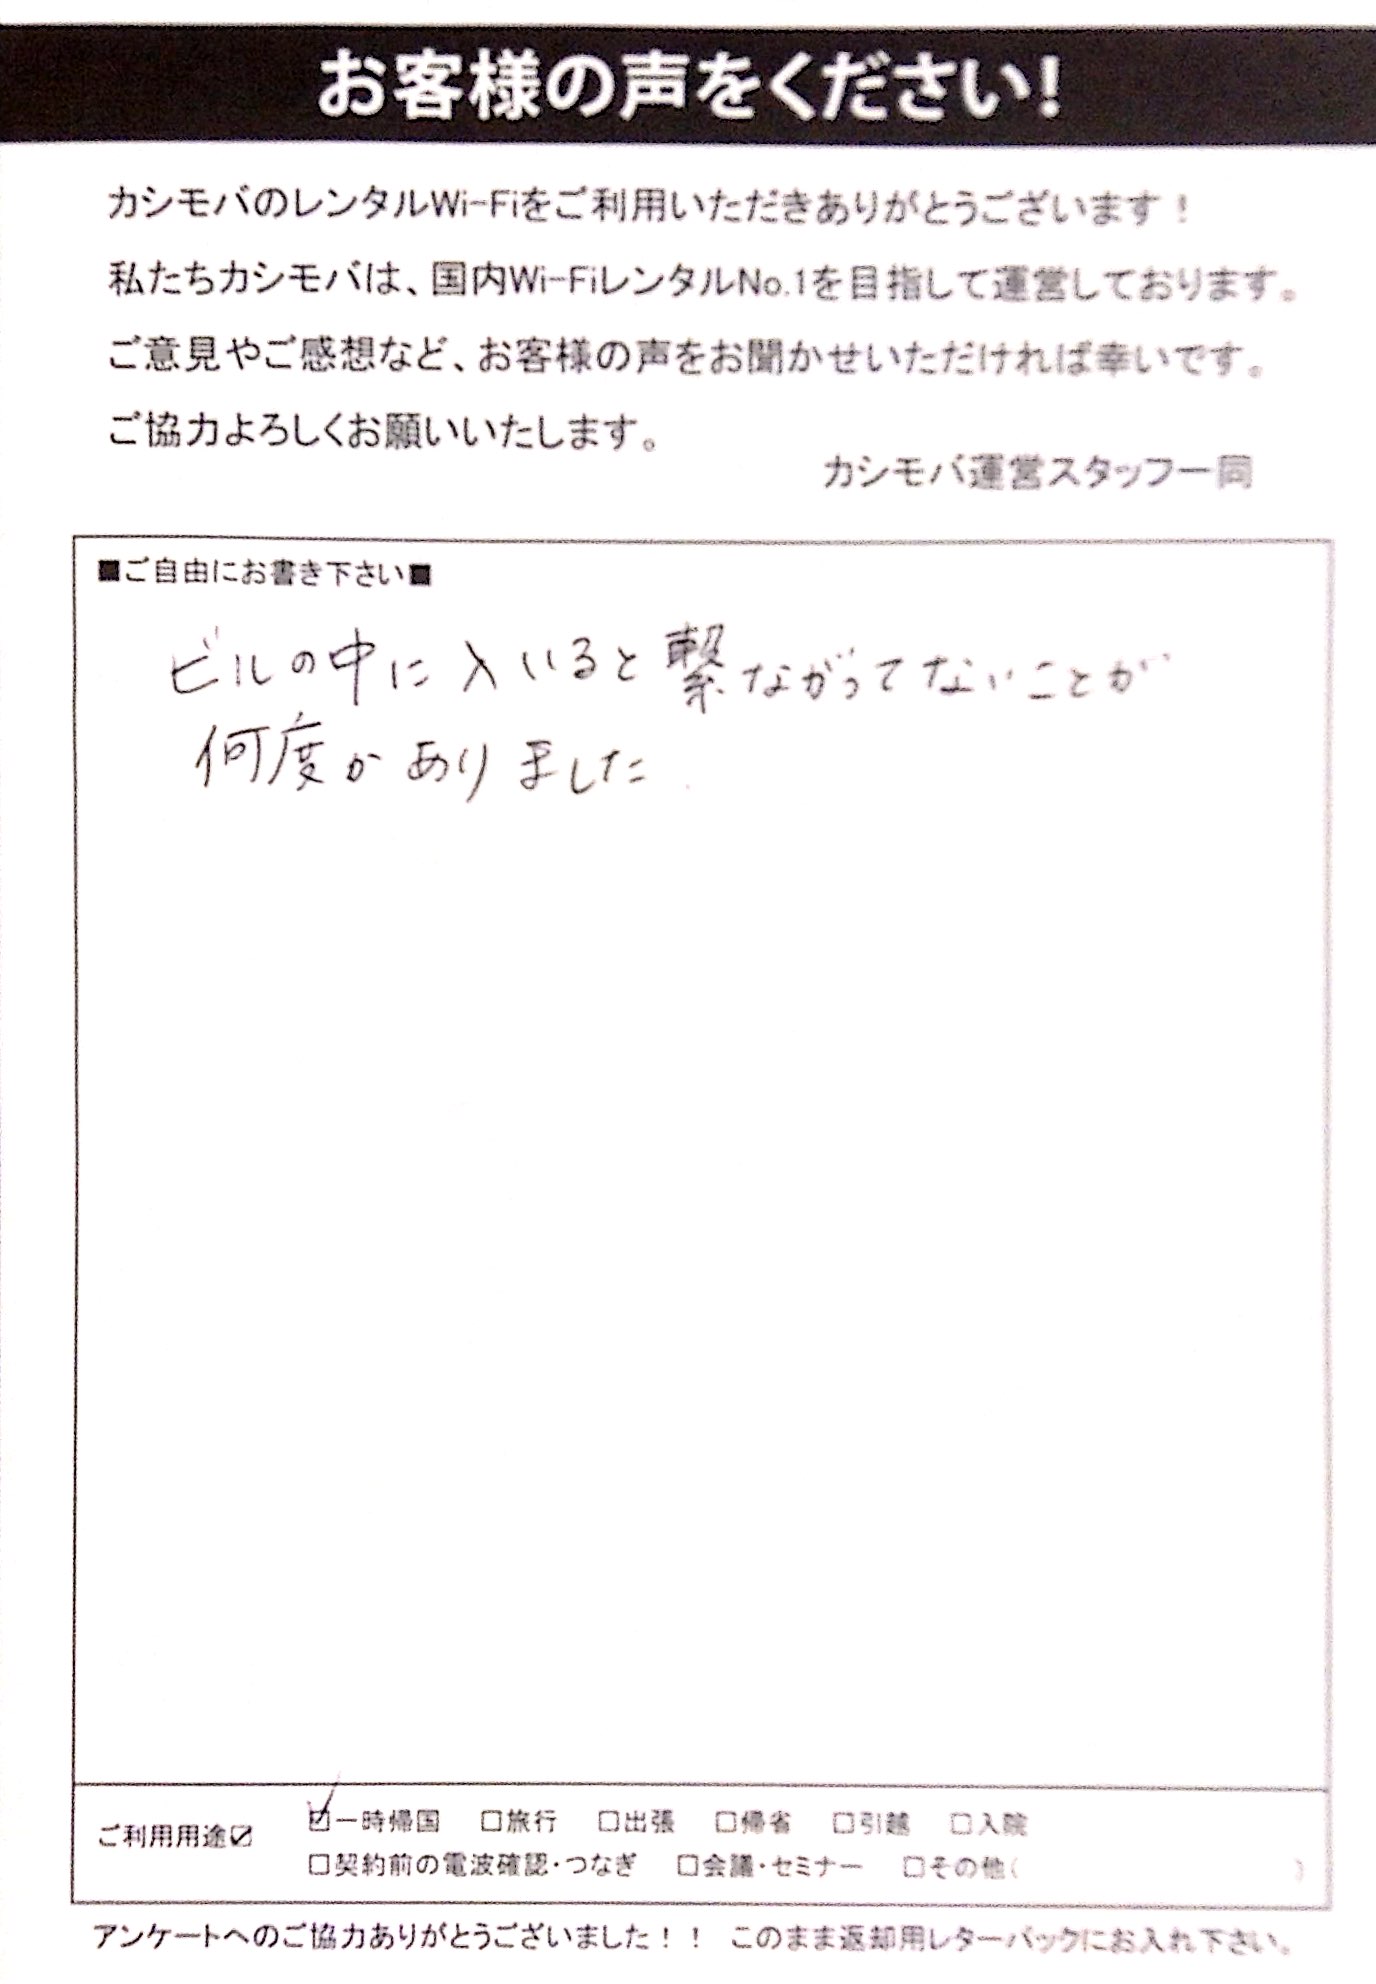 お客様の声をください!
カシモバのレンタルWi-Fiをご利用いただきありがとうございます！
私たちカシモバは、国内Wi-FiレンタルNo.1を目指して運営しております。
ご意見やご感想など、お客様の声をお聞かせいただければ幸いです。
ご協力よろしくお願いいたします。
カシモバ運営スタッフ一同
■ご自由にお書き下さい■
ビルの中に入いると繋ながってないことが
何度かありました
ご利用用途☑
☑一時帰国 □旅行 □出張 □帰省 □引越 □入院
□契約前の電波確認・つなぎ □会議・セミナー □その他( )
アンケートへのご協力ありがとうございました！！ このまま返却用レターパックにお入れ下さい。